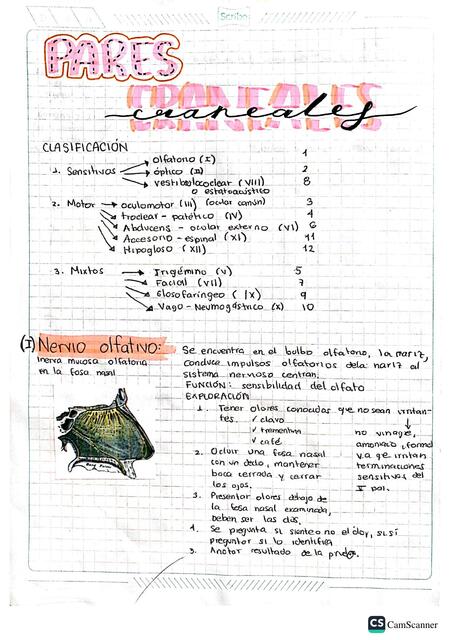 Scribe
PARES
CRANEALES
craneales
CLASIFICACIÓN
1. Sensitivas → olfatorio (I) 1
→ óptico (II) 2
→ vestibulococlear (VIII) 8
o estatoacústico
2. Motor → oculomotor (III) (ocular común) 3
troclear - patético (IV) 4
Abducens - ocular externo (VI) 6
Accesorio - espinal (XI) 11
Hipogloso (XII) 12
3. Mixtos → Trigémino (V) 5
Facial (VII) 7
Glosofaríngeo (IX) 9
Vago - Neumogástrico (X) 10
(I) Nervio olfativo:
Inerva mucosa olfatoria
en la fosa nasal
Se encuentra en el bulbo olfatorio, la nariz,
conduce impulsos olfatorios dela nariz al
sistema nervioso central.
FUNCIÓN: sensibilidad del olfato
EXPLORACIÓN
1. Tener olores conocidas que no sean irritan-
tes.
✓ clavo
✓ trementina
✓ café
↓
no vinagre,
amoniaco, formol
ya qe irritan
terminaciones
sensitivas del
V par.
2. Ocluir una fosa nasal
con un dedo, mantener
boca cerrada y cerrar
los ojos.
3. Presentar olores debajo de
la fosa nasal examinada,
deben ser las dos.
4. Se pregunta si siente o no el olor, si sí
preguntar si lo identifica
5. Anotar resultado de la prueba.
CS CamScanner